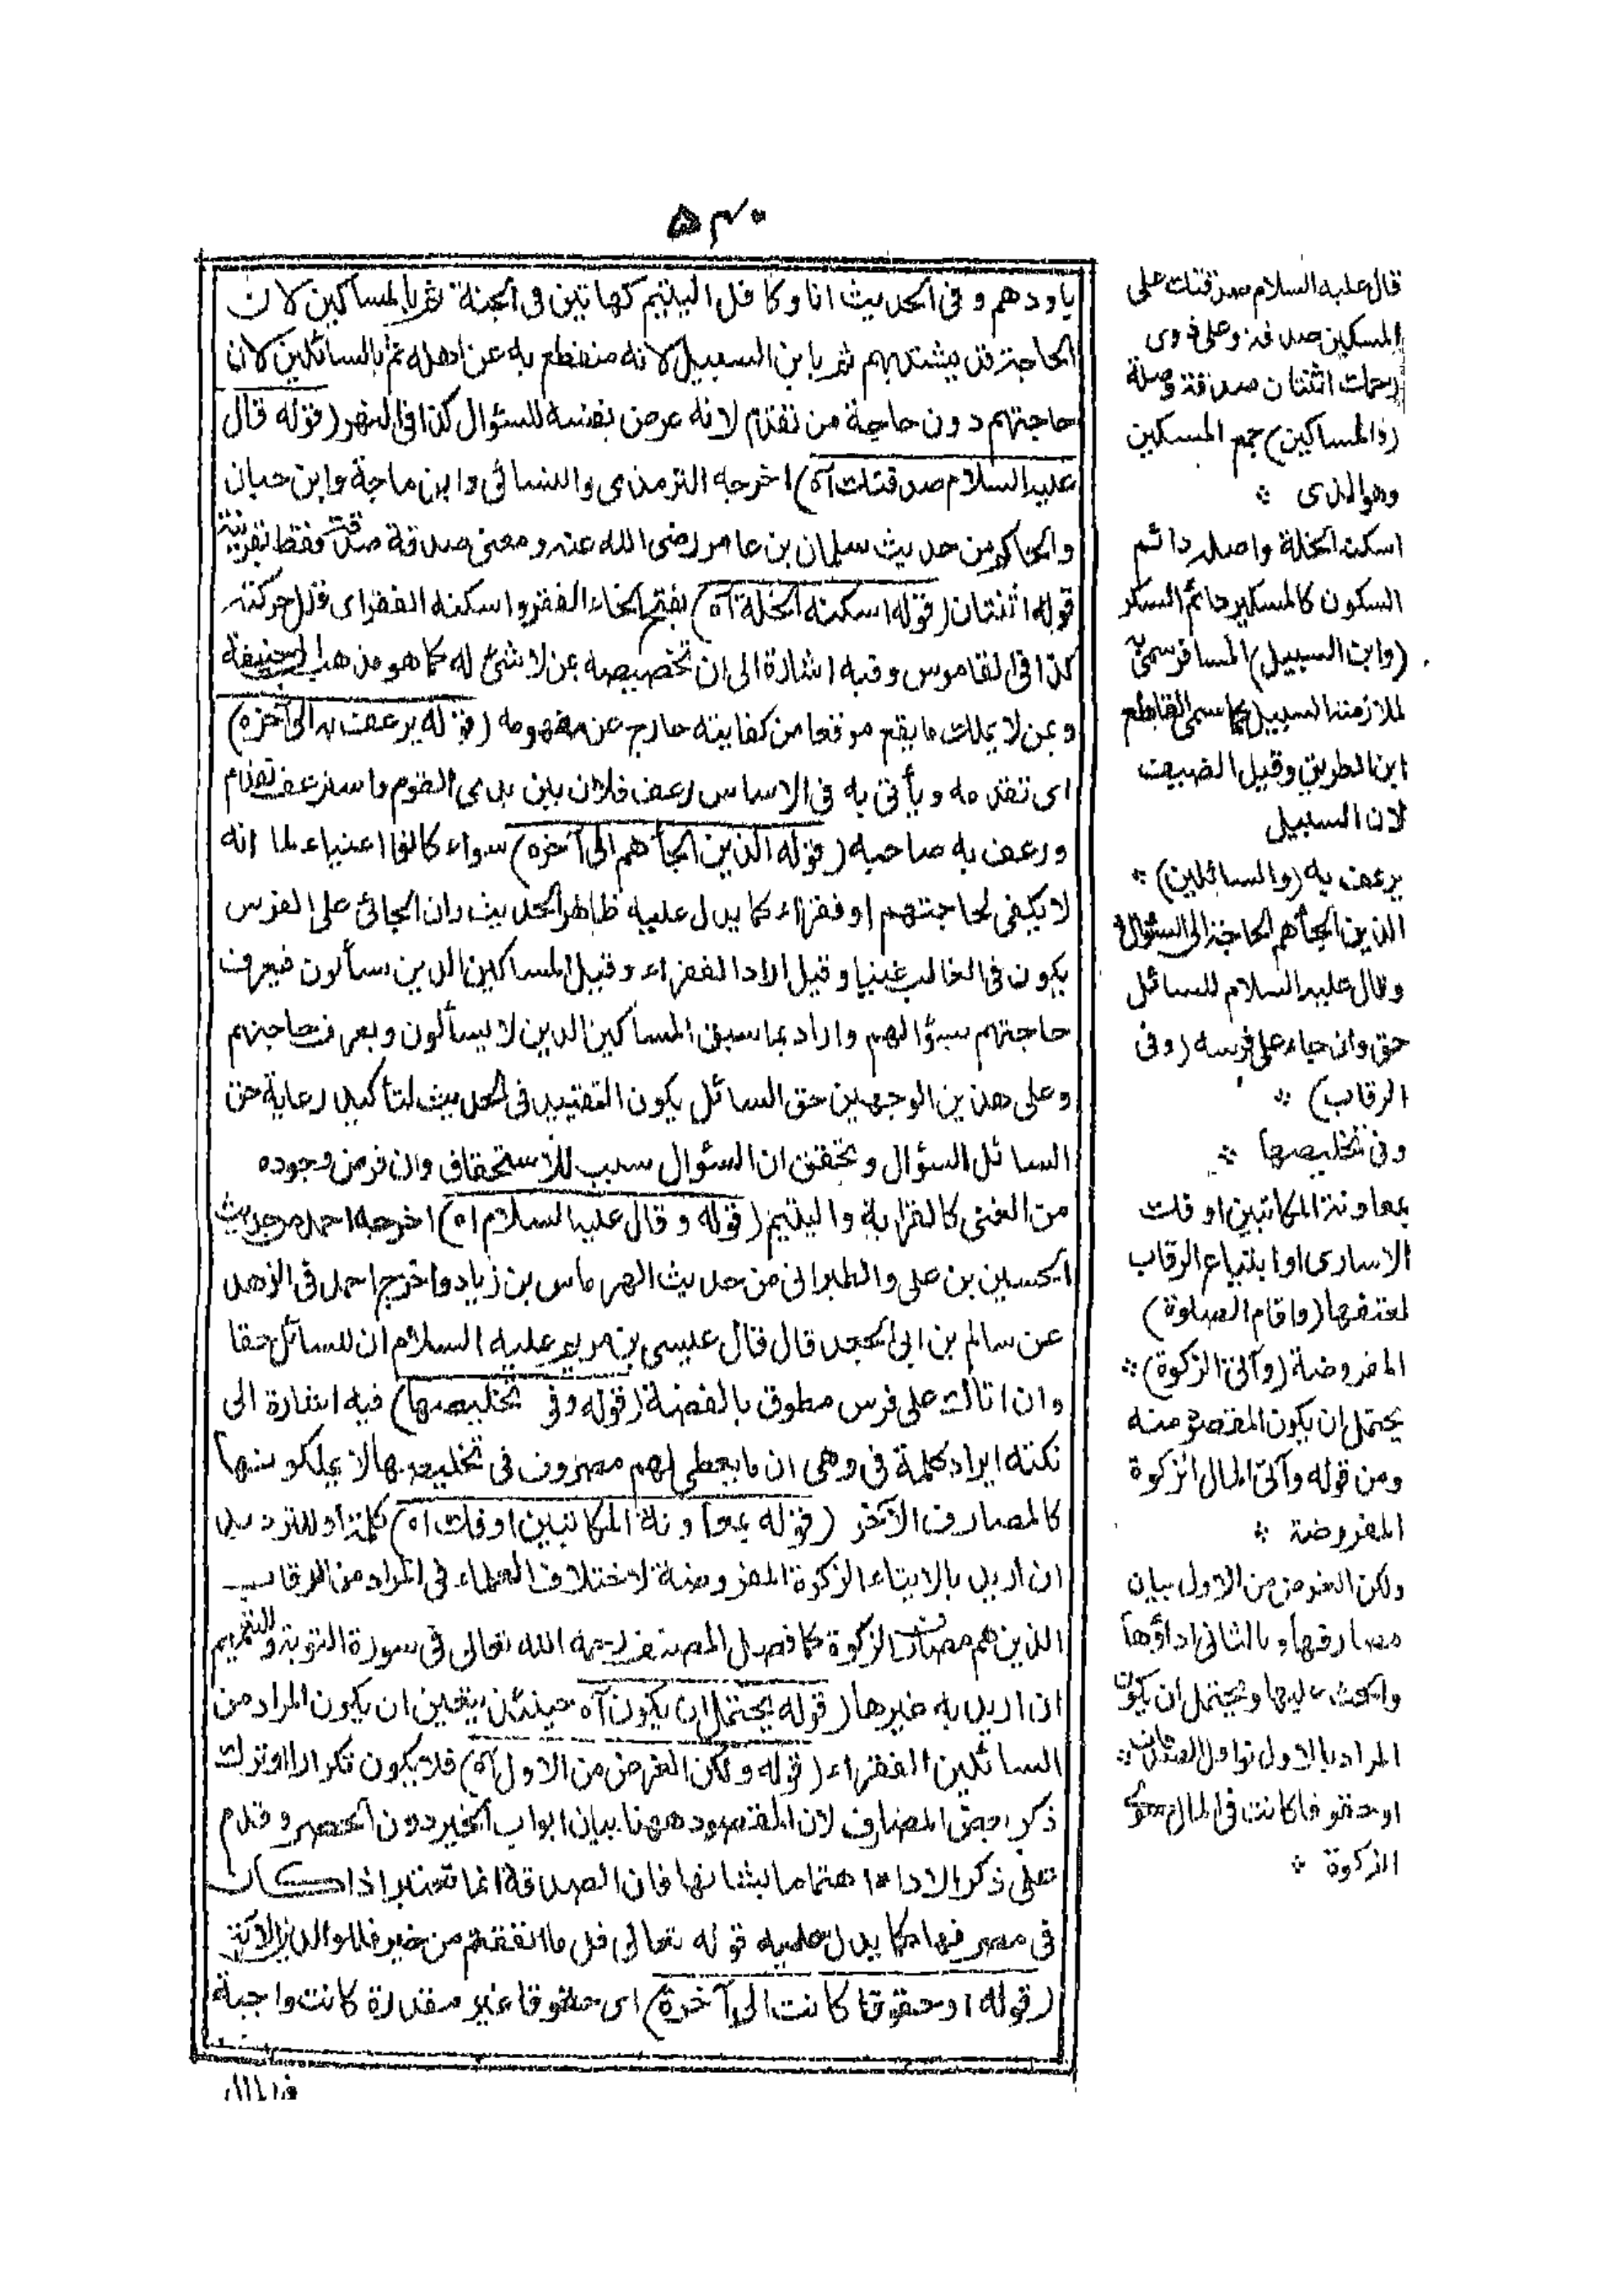 ٥٣٠
ياودهم وفى الحديث انا وكافل اليتيم كهاتين فى الجنة ثم بالمساكين لان
الحاجة قد يشتد بهم ثم بابن السبيل لانه منقطع به عن اهله ثم بالسائلين لان
حاجتهم دون حاجة من تقدم لانه عرض نفسه للسؤال كذا فى النهر (قوله قال
عليه السلام صدقتك آه) اخرجه الترمذى والنسائى وابن ماجة وابن حبان
والحاكم من حديث سلمان بن عامر رضى الله عنه ومعنى صدقة صدقة فقط بقرينة
قوله اثنتان (قوله اسكنه الخلة آه) بفتح الخاء الفقر واسكنه الفقر اى قلل حركته
كذا فى القاموس وفيه اشارة الى ان تخصيصه بمن لا شئ له كما هو مذهب ابى حنيفة
وبمن لا يملك ما يقع موقعا من كفايته خارج عن مفهومه (قوله يرعف به الى آخره)
اى تقدمه ويأتى به فى الاساس رعف فلان بين يدى القوم واسترعف تقدم
ورعف به صاحبه (قوله الذين الجأهم الى آخره) سواء كانوا اغنياء لما انه
لا يكفى لحاجتهم او فقراء كما يدل عليه ظاهر الحديث فان الجائى على الفرس
يكون فى الغالب غنيا وقيل اراد الفقراء وقيل المساكين الذين يسألون فيعرف
حاجتهم بسؤالهم واراد بما سبق المساكين الذين لا يسألون ويعرف حاجتهم
وعلى هذين الوجهين حق السائل يكون التقييد فى الحديث لتأكيد رعاية حق
السائل السؤال وتحقق ان السؤال سبب للاستحقاق وان فرض وجوده
من الغنى كالقرابة واليتيم (قوله وقال عليه السلام اه) اخرجه احمد من حديث
الحسين بن على والطبرانى من حديث الهرماس بن زياد واخرج احمد فى الزهد
عن سالم بن ابى الجعد قال قال عيسى بن مريم عليه السلام ان للسائل حقا
وان اتاك على فرس مطوق بالفضة (قوله وفى تخليصها) فيه اشارة الى
نكتة ايراد كلمة فى وهى ان ما يعطى لهم مصروف فى تخليصها لا يملكونها
كالمصارف الآخر (قوله بمعاونة المكاتبين او فك اه) كلمة او للترديد
ان اريد بالايتاء الزكوة المفروضة لاختلاف العلماء فى المراد من الرقاب
الذين هم مصارف الزكوة كما فصل المصنف رحمه الله تعالى فى سورة التوبة والتعميم
ان اريد به غيرها (قوله يحتمل ان يكون آه) حينئذ يتعين ان يكون المراد من
السائلين الفقراء (قوله ولكن الغرض من الاول آه) فلا يكون تكرارا وترك
ذكر بعض المصارف لان المقصود ههنا بيان ابواب الخير دون الحصر وقدم
على ذكر الاداء اهتماما بشانها فان الصدقة انما تعتبر اذا كان
فى مصرفها كما يدل عليه قوله تعالى قل ما انفقتم من خير فللوالدين الآية
(قوله او حقوقا كانت الى آخره) اى حقوقا غير مقدرة كانت واجبة
قال عليه السلام صدقتك على
المسكين صدقة وعلى ذوى
رحمك اثنتان صدقة وصلة
(والمساكين) جمع المسكين
وهو الذى
اسكنه الخلة واصله دائم
السكون كالمسكير دائم السكر
(وابن السبيل) المسافر سمى به
لملازمته السبيل كما سمى القاطع
ابن الطريق وقيل الضيف
لان السبيل
يرعف به (والسائلين)
الذين الجأهم الحاجة الى السؤال
وقال عليه السلام للسائل
حق وان جاء على فرسه (وفى
الرقاب)
وفى تخليصها
بمعاونة المكاتبين او فك
الاسارى او ابتياع الرقاب
لعتقها (واقام الصلوة)
المفروضة (وآتى الزكوة)
يحتمل ان يكون المقصود منه
ومن قوله وآتى المال الزكوة
المفروضة
ولكن الغرض من الاول بيان
مصارفها وبالثانى اداؤها
والحث عليها ويحتمل ان يكون
المراد بالاول نوافل الصدقات
او حقوقا كانت فى المال سوى
الزكوة